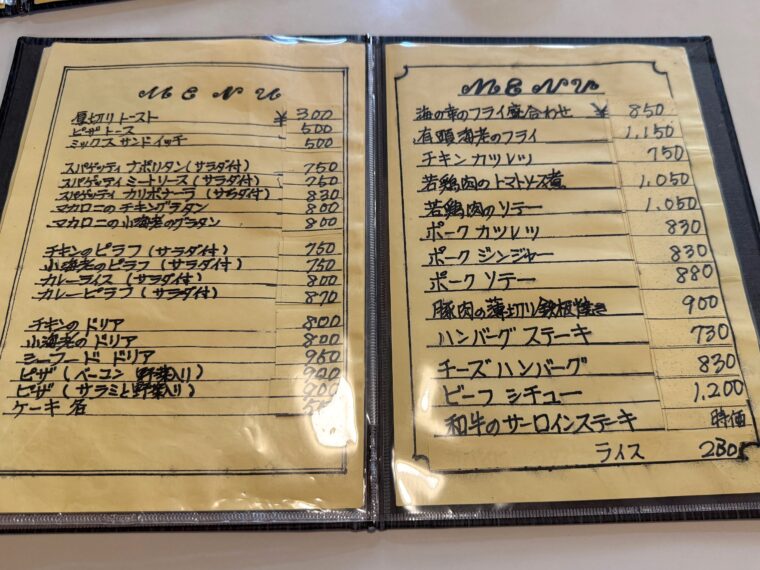 MENU
厚切りトースト ¥ 300
ピザトース 500
ミックスサンドイッチ 500
スパゲッティ ナポリタン(サラダ付) 750
スパゲッティ ミートソース(サラダ付) 750
スパゲッティ カリボナーラ(サラダ付) 830
マカロニのチキングラタン 800
マカロニの小海老のグラタン 800
チキンのピラフ(サラダ付) 750
小海老のピラフ(サラダ付) 750
カレーライス(サラダ付) 800
カレーピラフ(サラダ付) 870
チキンの ドリア 800
小海老の ドリア 800
シーフード ドリア 950
ピザ(ベーコン 野菜入り) 900
ピザ(サラミと野菜入り) 900
ケーキ 各
MENU
海の幸のフライ盛合わせ ¥ 850
有頭海老のフライ 1,150
チキン カツレツ 750
若鶏肉のトマトソース煮 1,050
若鶏肉のソテー 1,050
ポーク カツレツ 830
ポーク ジンジャー 830
ポーク ソテー 880
豚肉の薄切り鉄板焼き 900
ハンバーグ ステーキ 730
チーズ ハンバーグ 830
ビーフ シチュー 1,200
和牛のサーロインステーキ 時価
ライス 230